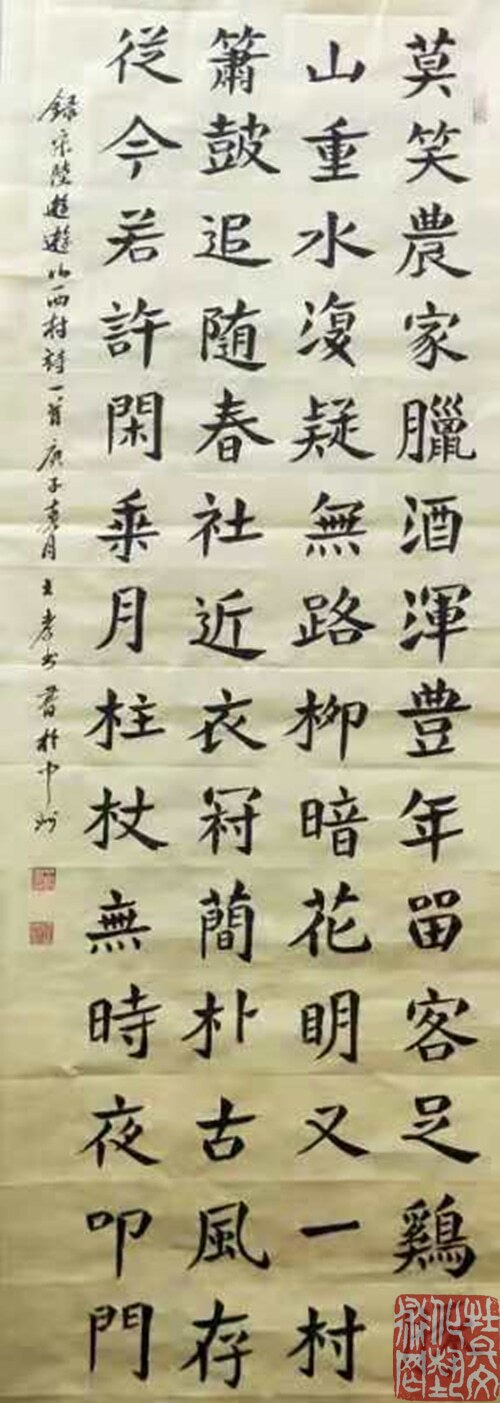 莫笑農家臘酒渾豊年畱客足鷄
山重水復疑無路柳暗花明又一村
簫鼓追随春社近衣冠簡朴古風存
從今若許閑乘月柱杖無時夜叩門
錄宋陸遊遊山西村詩一首庚子月書於中州